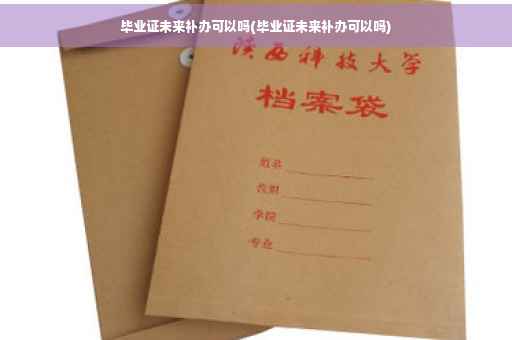 毕业证未来补办可以吗(毕业证未来补办可以吗)
陕西科技大学
档案袋
学院
专业